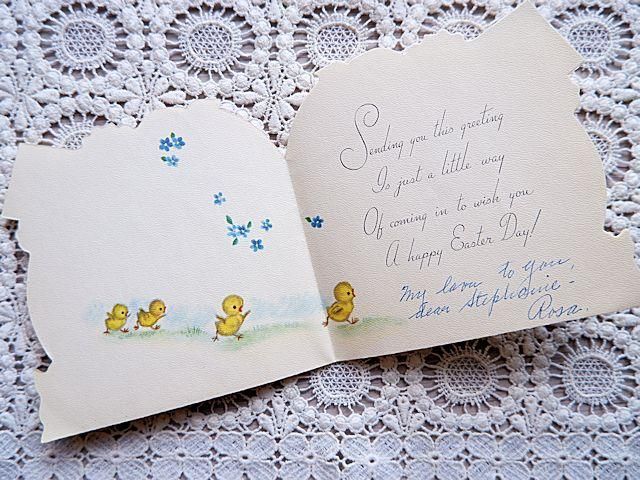 Sending you this greeting
Is just a little way
Of coming in to wish you
A happy Easter Day!
My love to you,
dear Stephanie -
Rosa.